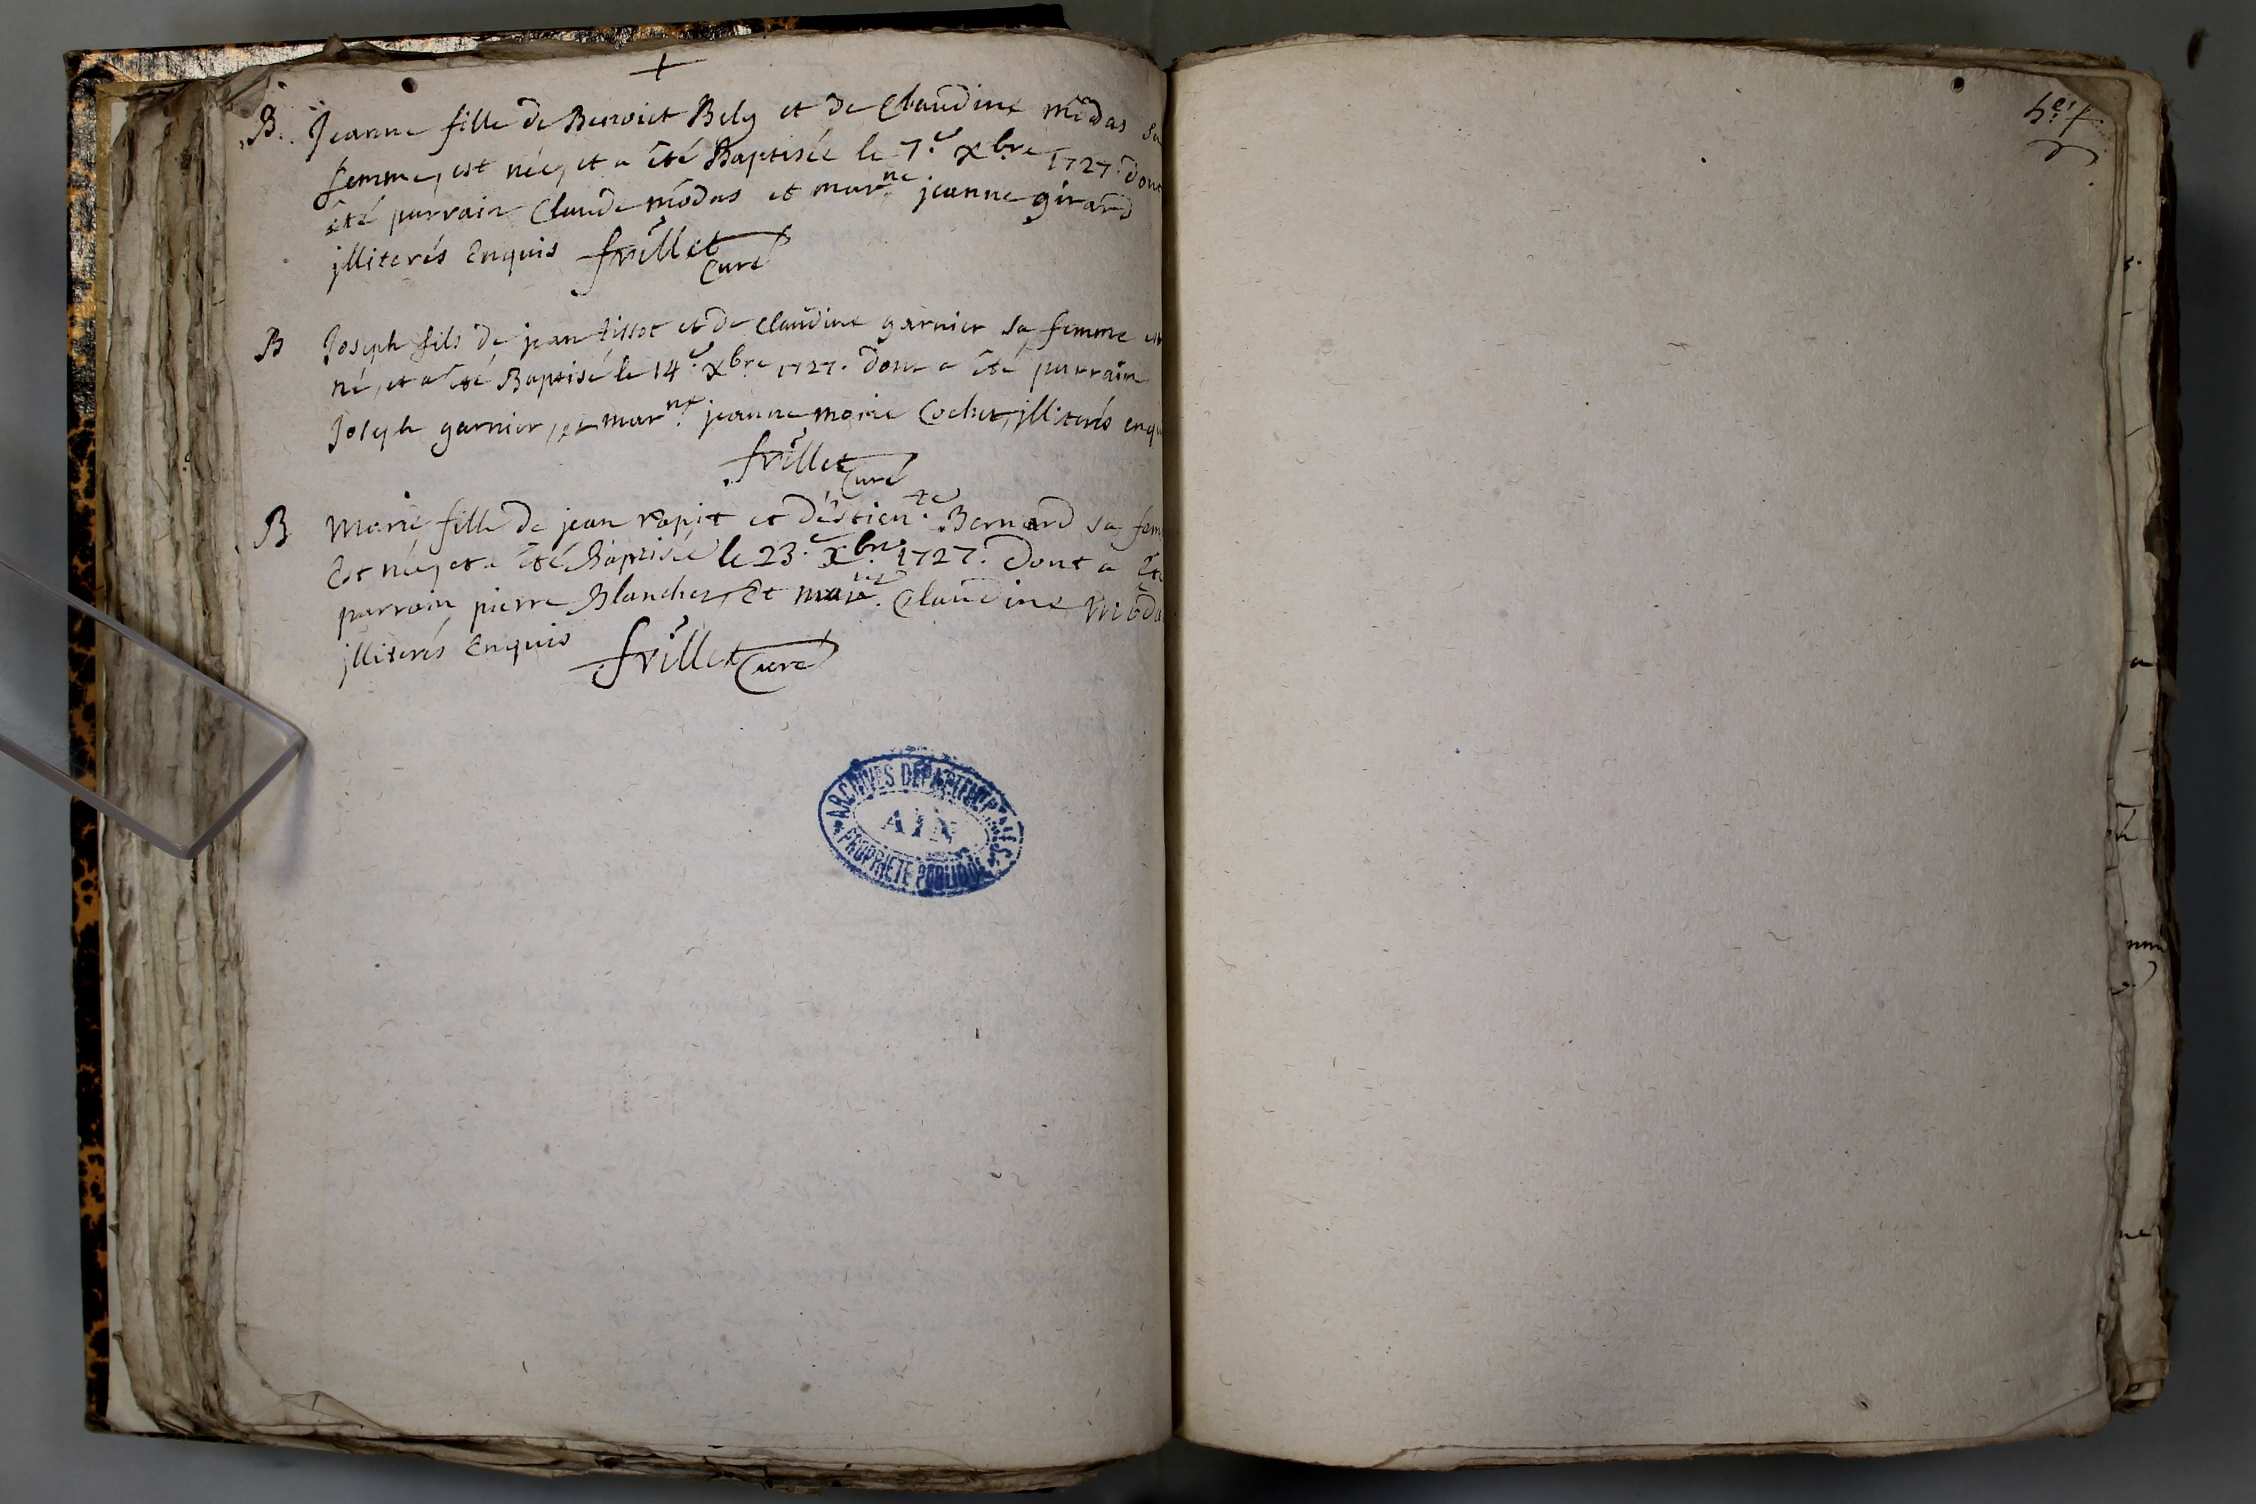 +
B. Jeanne fille de Benoict Bely et de Claudine mõdas sa
femme, est née, et a êté Baptisée le 7.e xbre 1727. dont
êté parrain Claude mõdas et marne jeanne girard
jlliterés Enquis frillet
Curé
B Joseph fils de jean tissot et de claudine garnier sa femme est
né, et a êté Baptisé le 14.e xbre 1727. dont a êté parrain
Joseph garnier, et marne. jeanne marie Cochet, jlliterés enqu
frillet
Curé
B Marie fille de jean rapit et d'éstiente. Bernard sa fem
Est née, et a êté Baptisée le 23.e xbre. 1727. Dont a Eté
parrain pierre Blanchet, Et marne. Claudine Mõda
jlliterés Enquis frillet Curé
ARCHIVES DEPARTEMENTALES
AIN
PROPRIETE PUBLIQUE